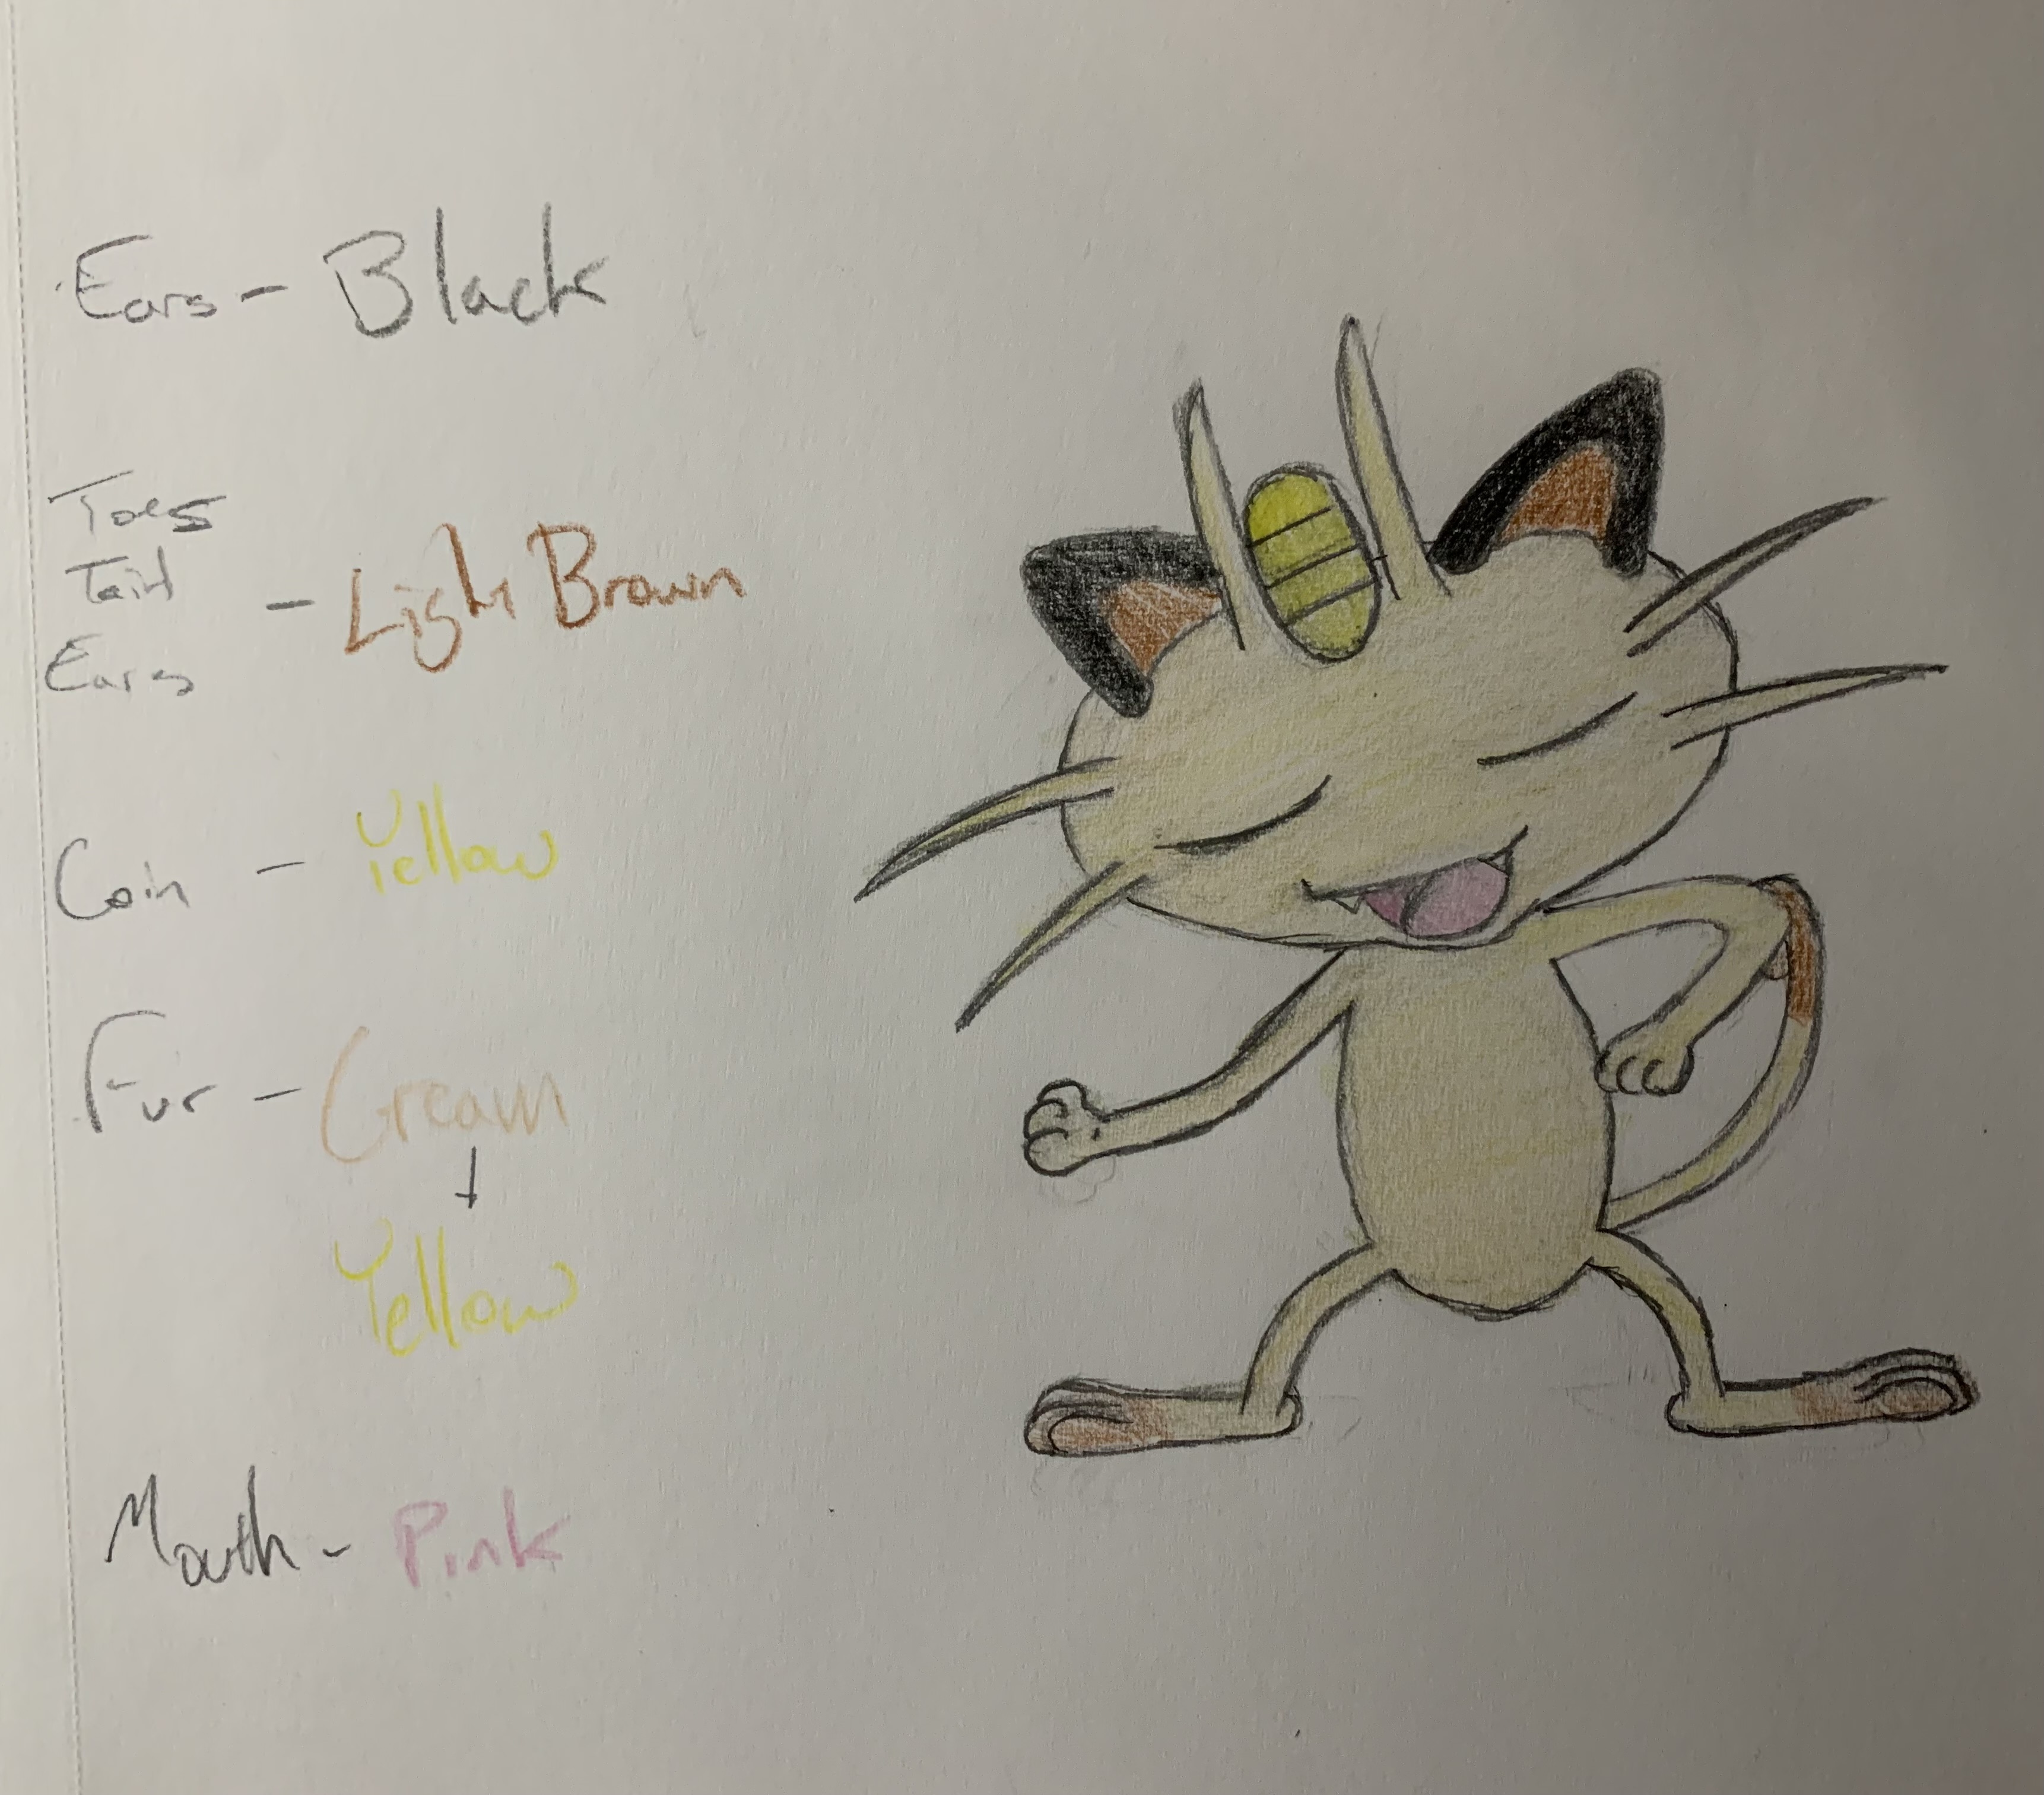 Ears - Black
Toes
Tail - Light Brown
Ears
Coin - Yellow
Fur - Cream
↓
Yellow
Mouth - Pink